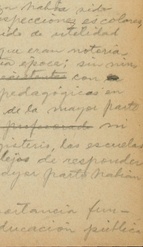 había sido
inspecciones escolares
ido de utilidad
que eran notoria
ta época; sin nin
con
pedagógicas en
de la mayor parte
profesorado mi
gisterio, las escuelas
lejos de responder
mayor parte habían
portancia fun-
ducación pública